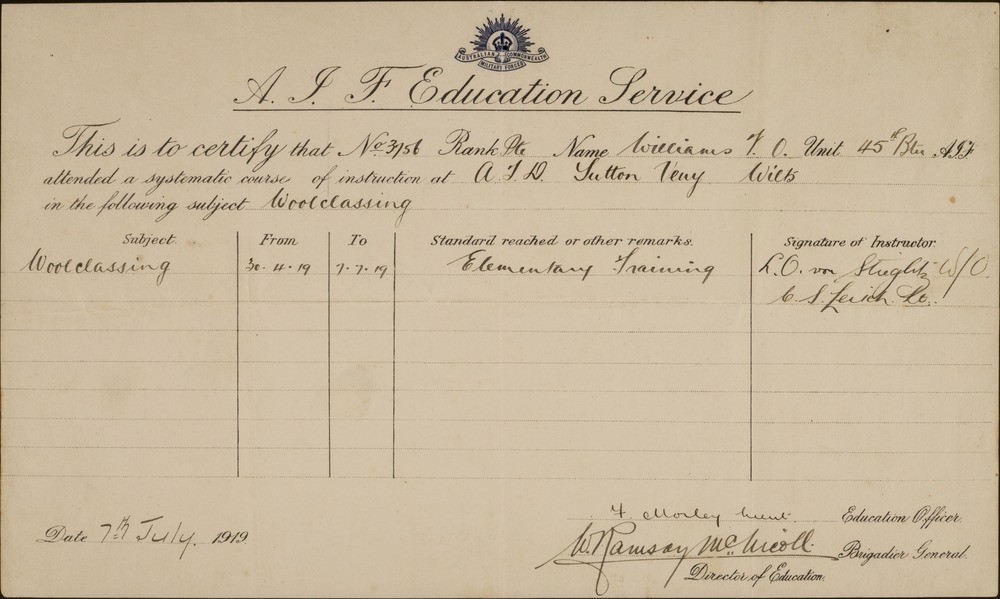 AUSTRALIAN COMMONWEALTH
MILITARY FORCES
A. I. F. Education Service
This is to certify that No 3756 Rank Pte Name Williams F. O. Unit 45th Btn A.I.F.
attended a systematic course of instruction at A.I.D. Sutton Veny Wilts
in the following subject Woolclassing
Subject. From To Standard reached or other remarks. Signature of Instructor.
Woolclassing 30.4.19 7.7.19 Elementary Training L.O. von Stieglitz W/O.
C. S.
F. Morley Education Officer.
Date 7th July. 1919
W. Ramsay McNicoll. Brigadier General.
Director of Education.